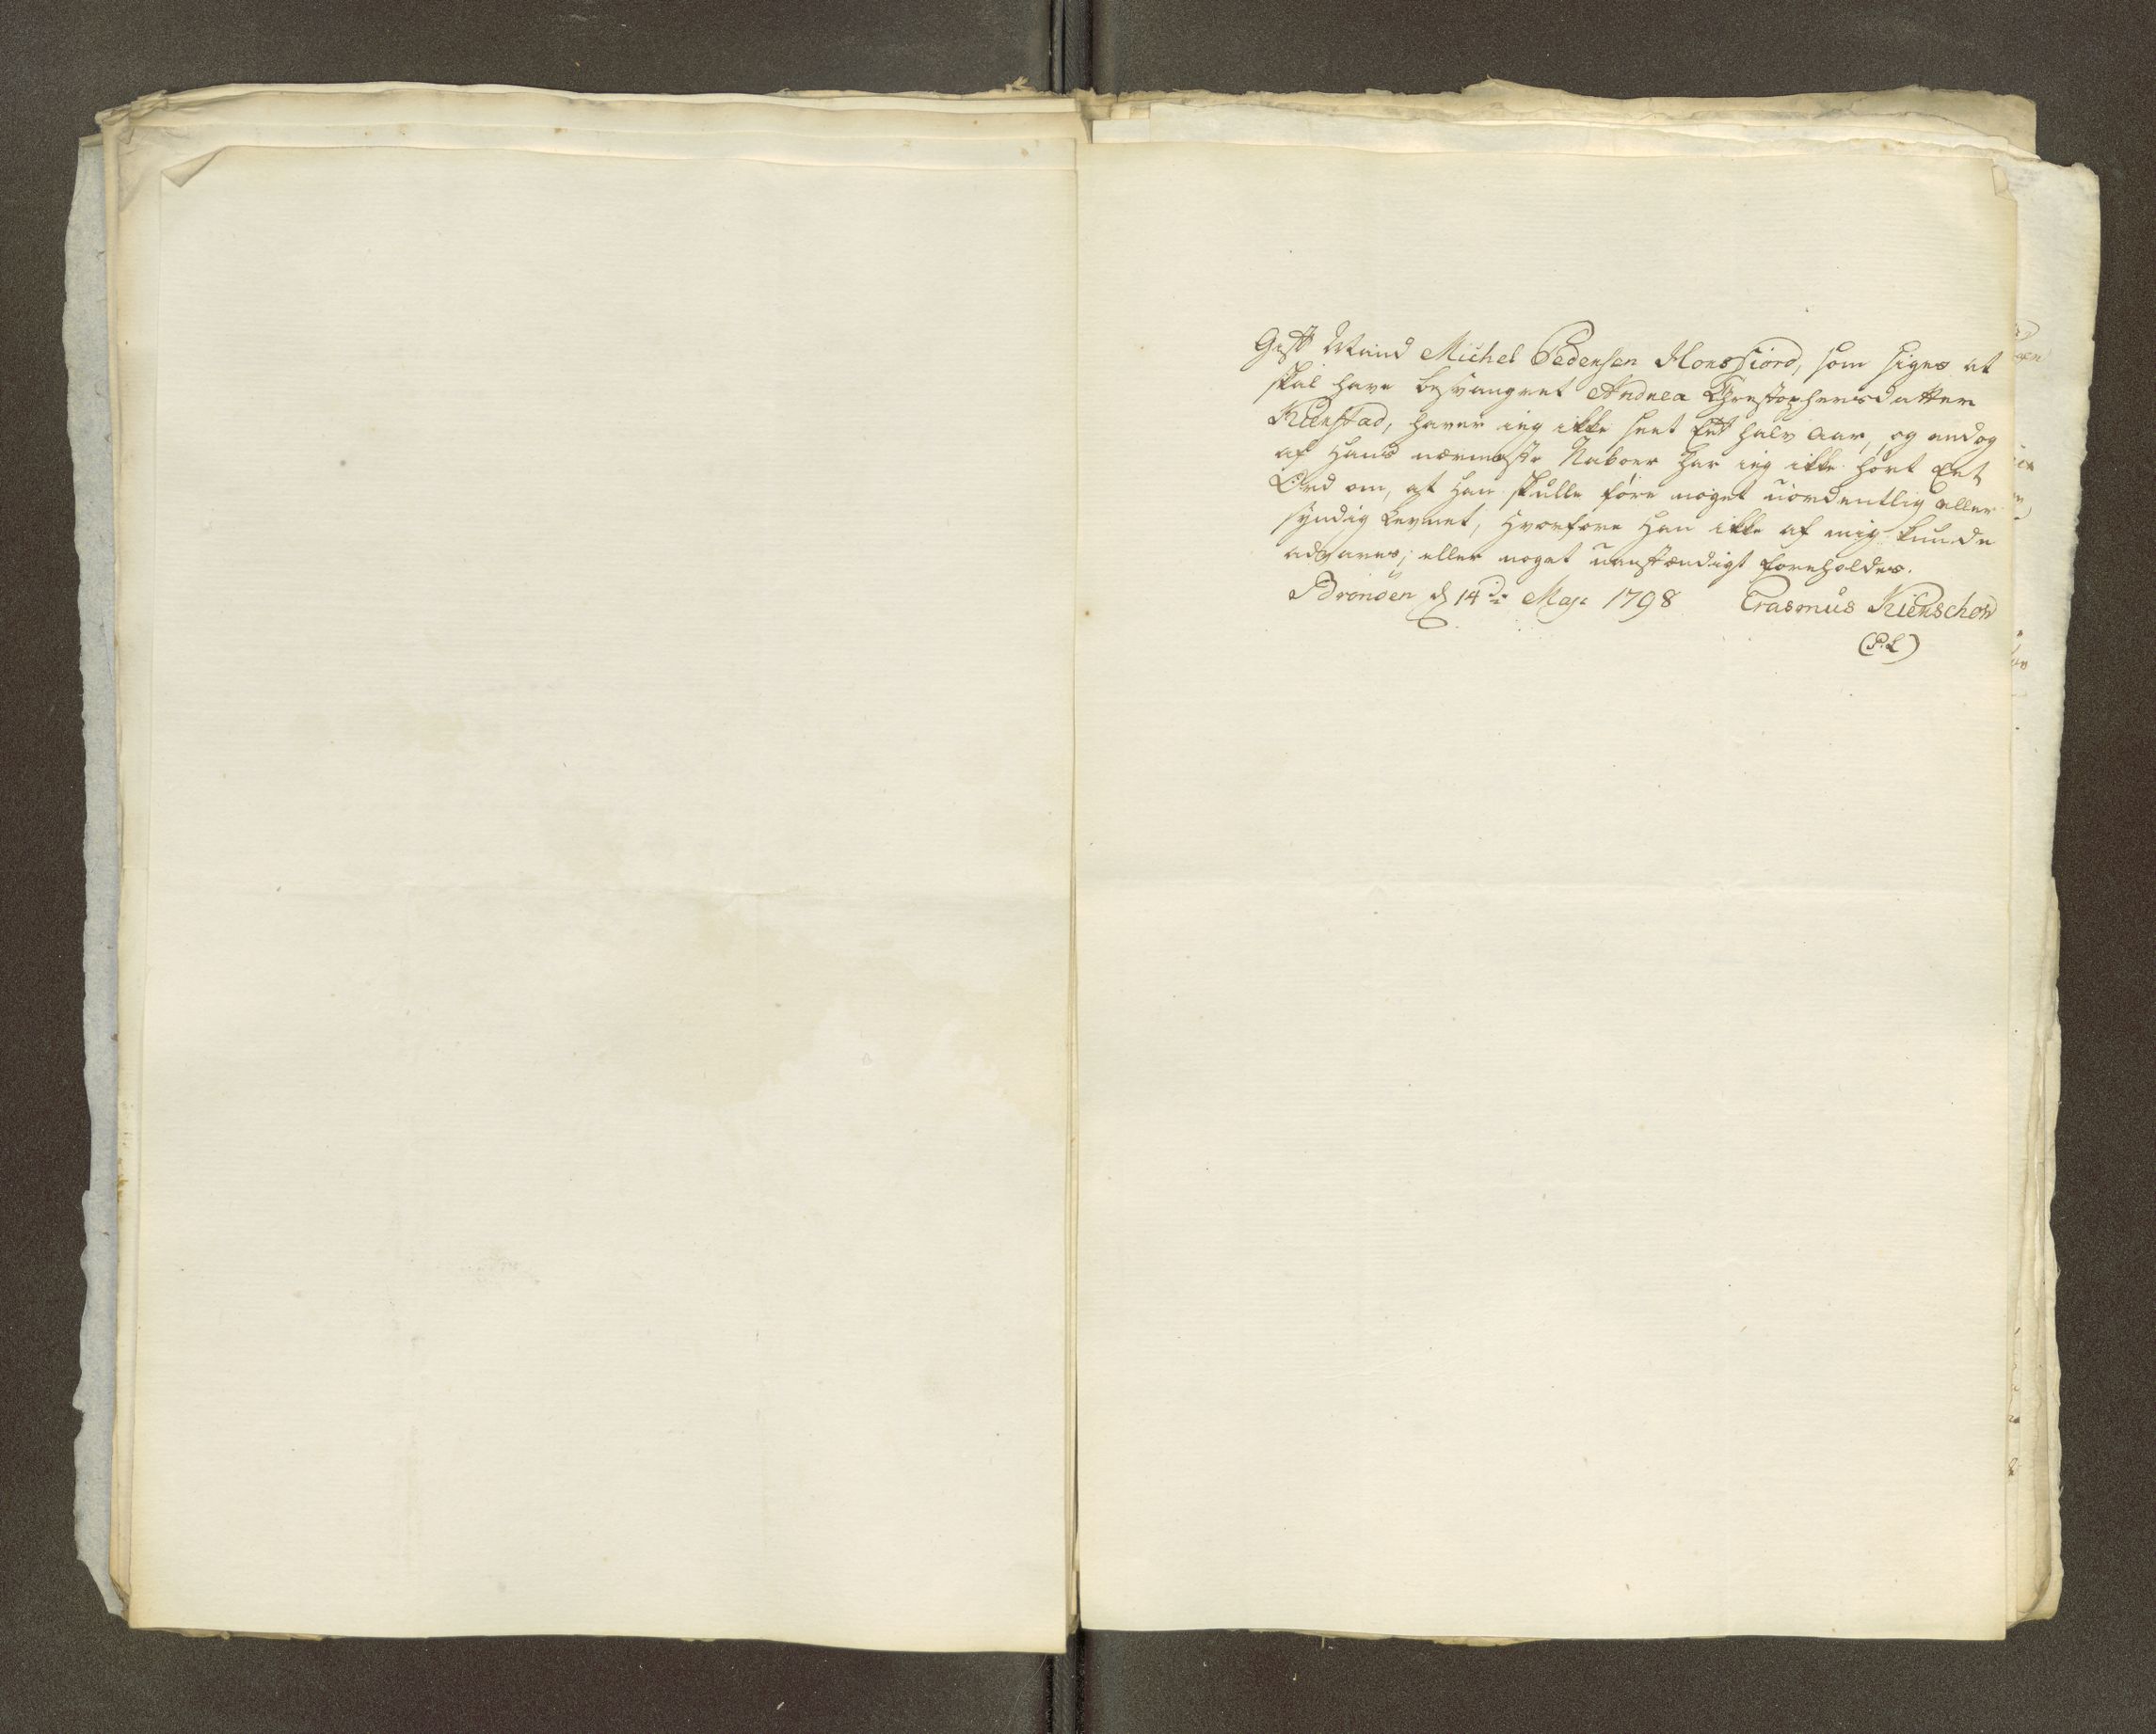 Gift Mand Michel Pedersen Horsfiord, som siges at
skal have besvangret Andrea Chrestophersdatter
Kierstad, haver ieg ikke seet Eet halv Aar, og endog
af Hans nærmeste Naboer har ieg ikke hört Eet
Ord om, at Han skulle före noget uordentlig eller
syndig Levnet, Hvorfore Han ikke af mig kunde
advares; eller noget uanstændigt foreholdes.
Brönöen d 14de Maji 1798 Erasmus Kierschow
(P:L)